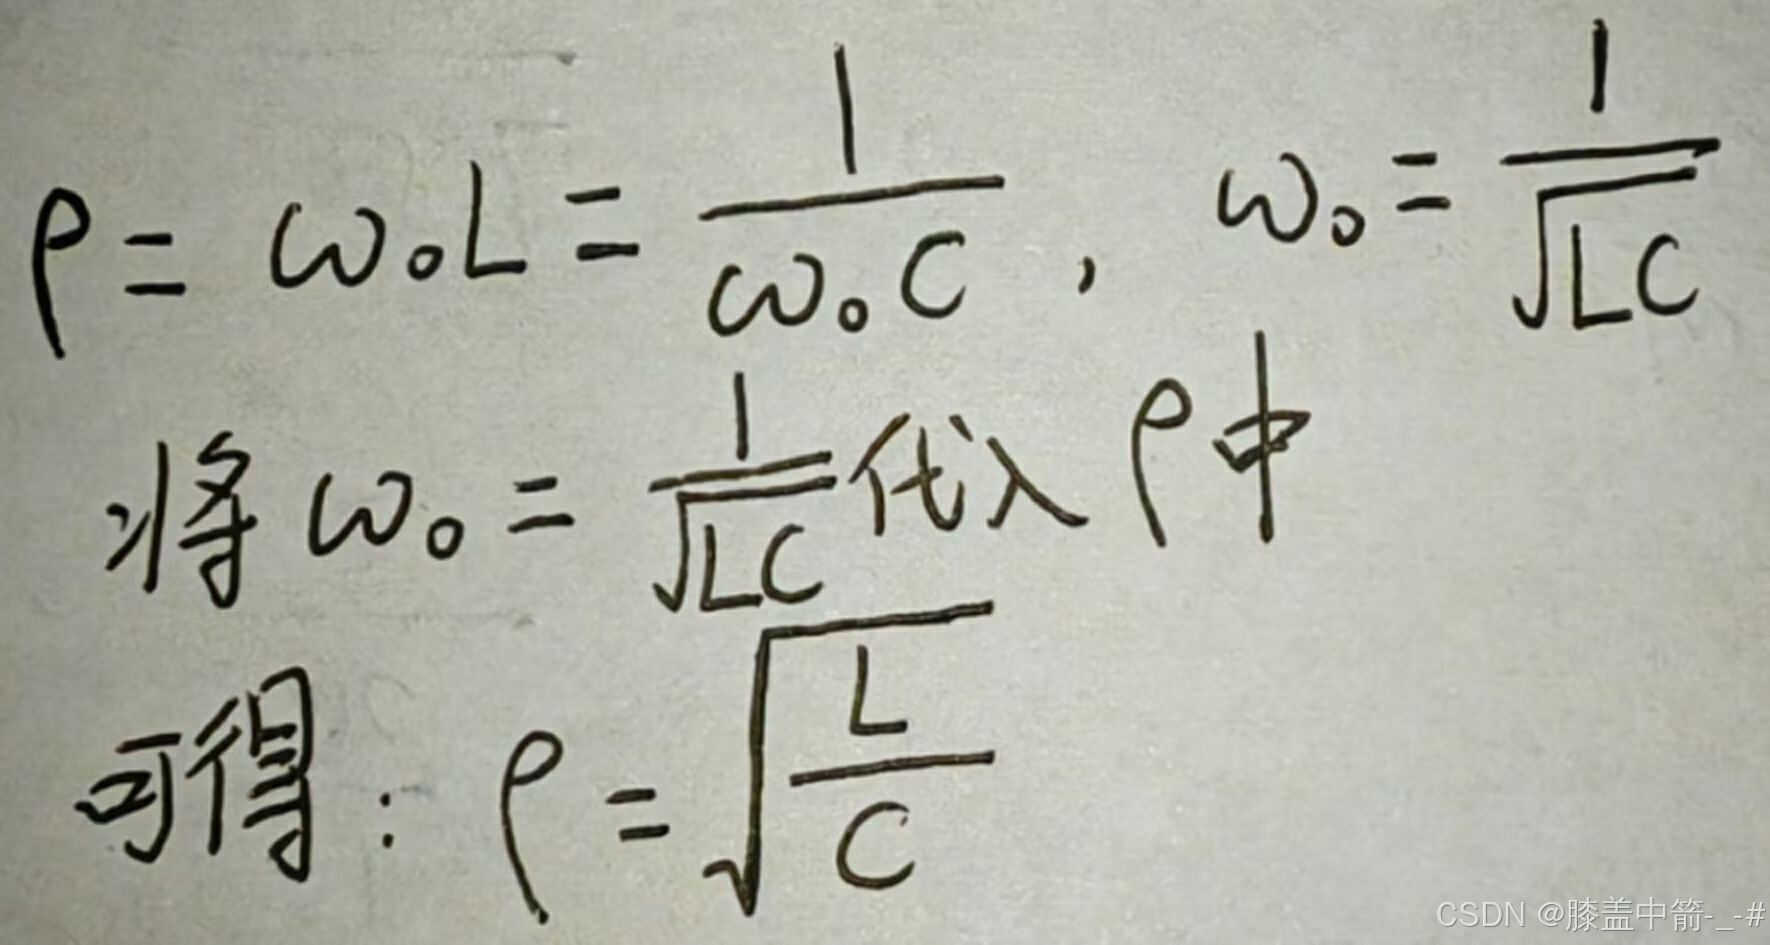 ρ = ω₀L = 1/(ω₀C), ω₀ = 1/√(LC)
将 ω₀ = 1/√(LC) 代入 ρ 中
可得: ρ = √(L/C)
CSDN @膝盖中箭-_-#